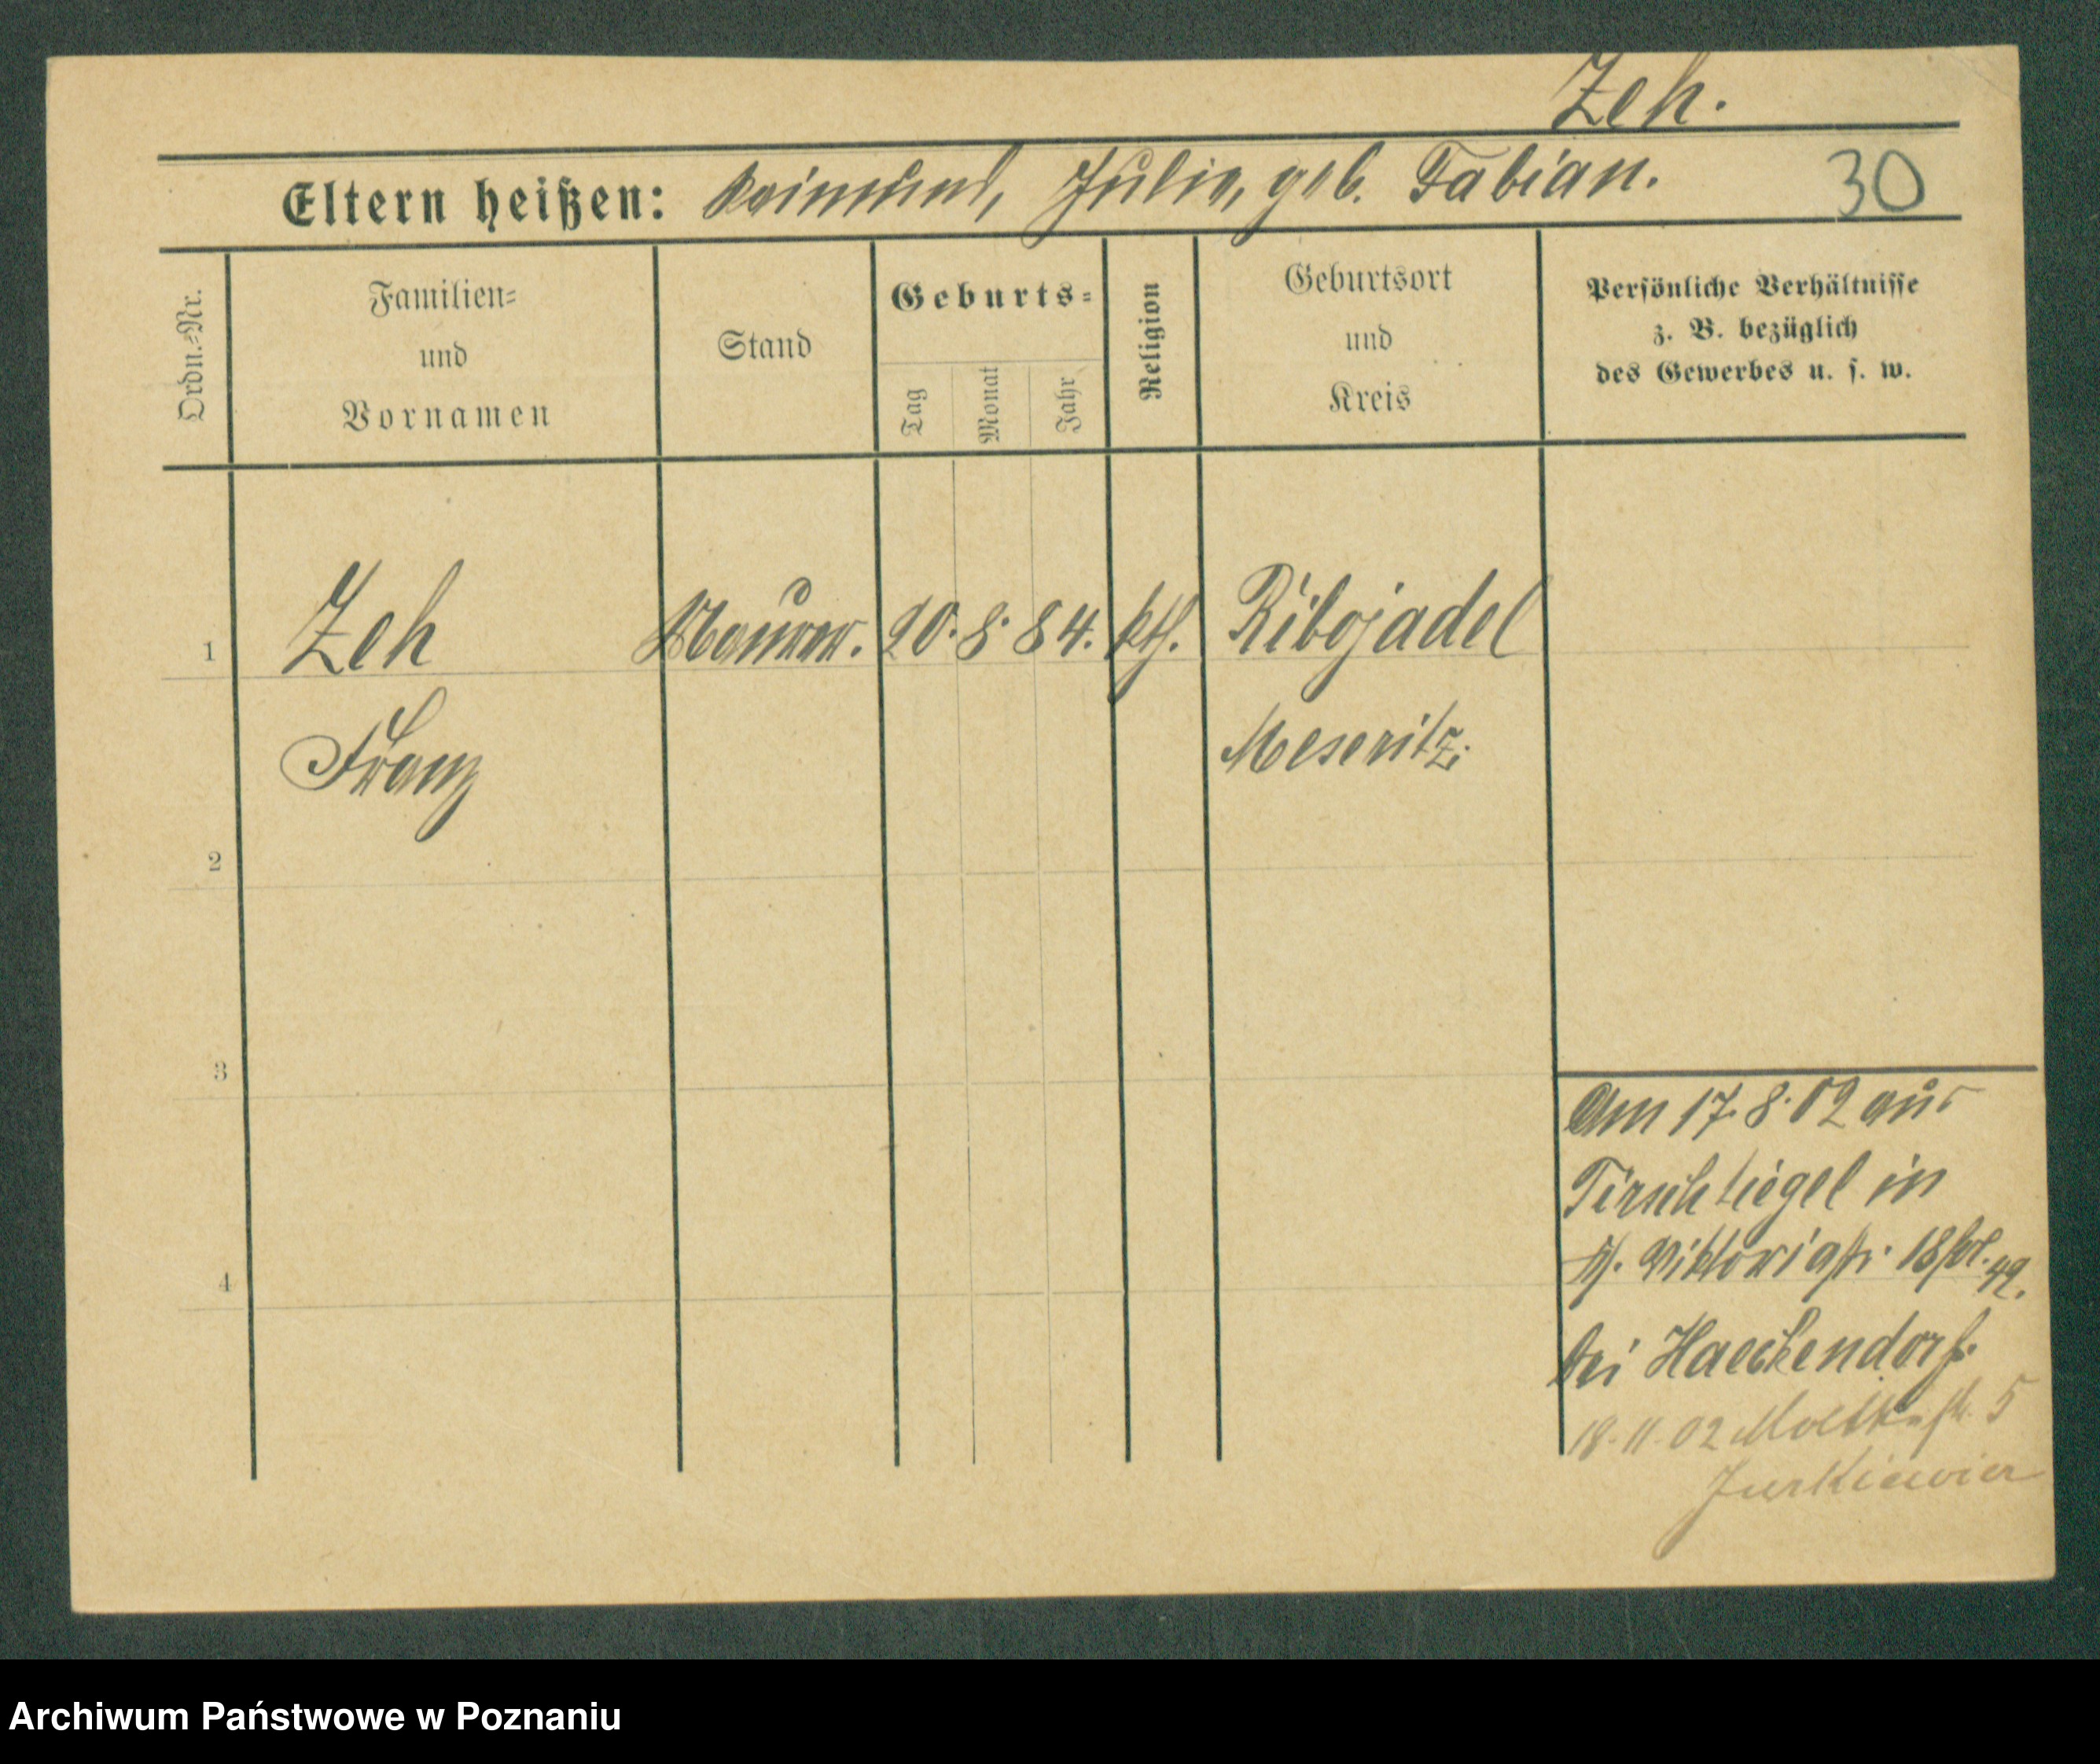 Zeh.
Eltern heißen: Reimund, Julie, geb. Fabian. 30
Ordn.-Nr.
Familien-
und
Vornamen
Stand
Geburts-
Tag
Monat
Jahr
Religion
Geburtsort
und
Kreis
Persönliche Verhältnisse
z. B. bezüglich
des Gewerbes u. s. w.
1 Zeh Maurer. 20. 8. 84. kth. Ribojadel
Franz Meseritz.
2
3
4
Am 17. 8. 02 aus
Tirschtiegel in
Viktoriastr. 18
bei Haeckendorf.
18. 11. 02 Moltkestr. 5
Archiwum Państwowe w Poznaniu